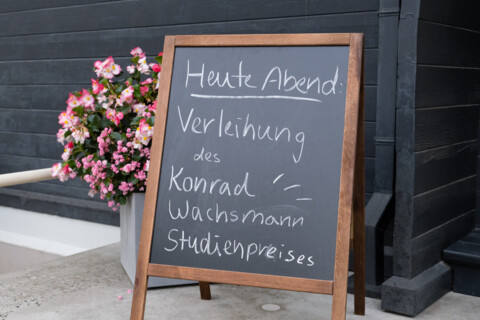 Heute Abend:
Verleihung
des
Konrad
Wachsmann
Studienpreises